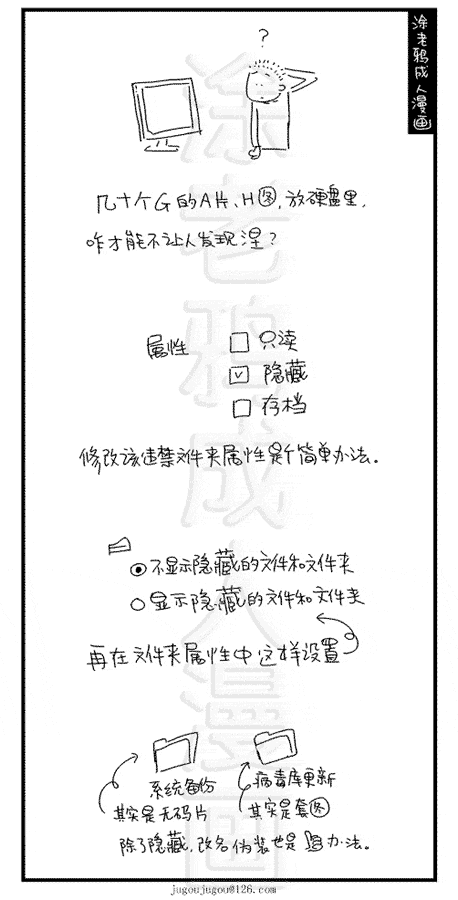 涂老鸦成人漫画
?
几十个G的A片、H图,放硬盘里,
咋才能不让人发现涅?
属性 只读
隐藏
存档
修改该违禁文件夹属性是个简单办法。
不显示隐藏的文件和文件夹
显示隐藏的文件和文件夹
再在文件夹属性中这样设置
系统备份 病毒库更新
其实是无码片 其实是套图
除了隐藏,改名伪装也是办法。
jugoujugou@126.com
涂老鸦成人漫画